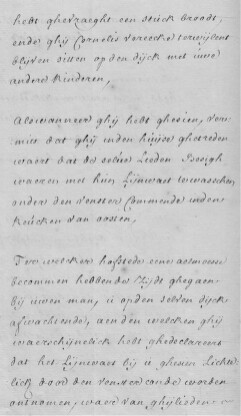 hebt ghevraeght een stuck broodt,
ende ghij Cornelis vereecke terwijlent
blijven sitten op den dijck met uwe
andere kinderen,
Alswanneer ghij hebt ghesien, ver-
mits dat ghij inden huijse ghetreden
waert dat de selve Lieden besigh
waeren met hun Lijnwaet te wasschen
onder den venster commende inden
keucken van aossen,
Tot welcker hofstede eene aelmoesse
becommen hebbende Zijdt ghegaen
bij uwen man, u op den selven dijck
afwachtende, aen den welcken ghij
waerschijnelick hebt ghedeclareert
dat het Lijnwaet bij u ghesien Lichte-
lick daer den venster conde worden
ontnomen, waer van ghijlieden